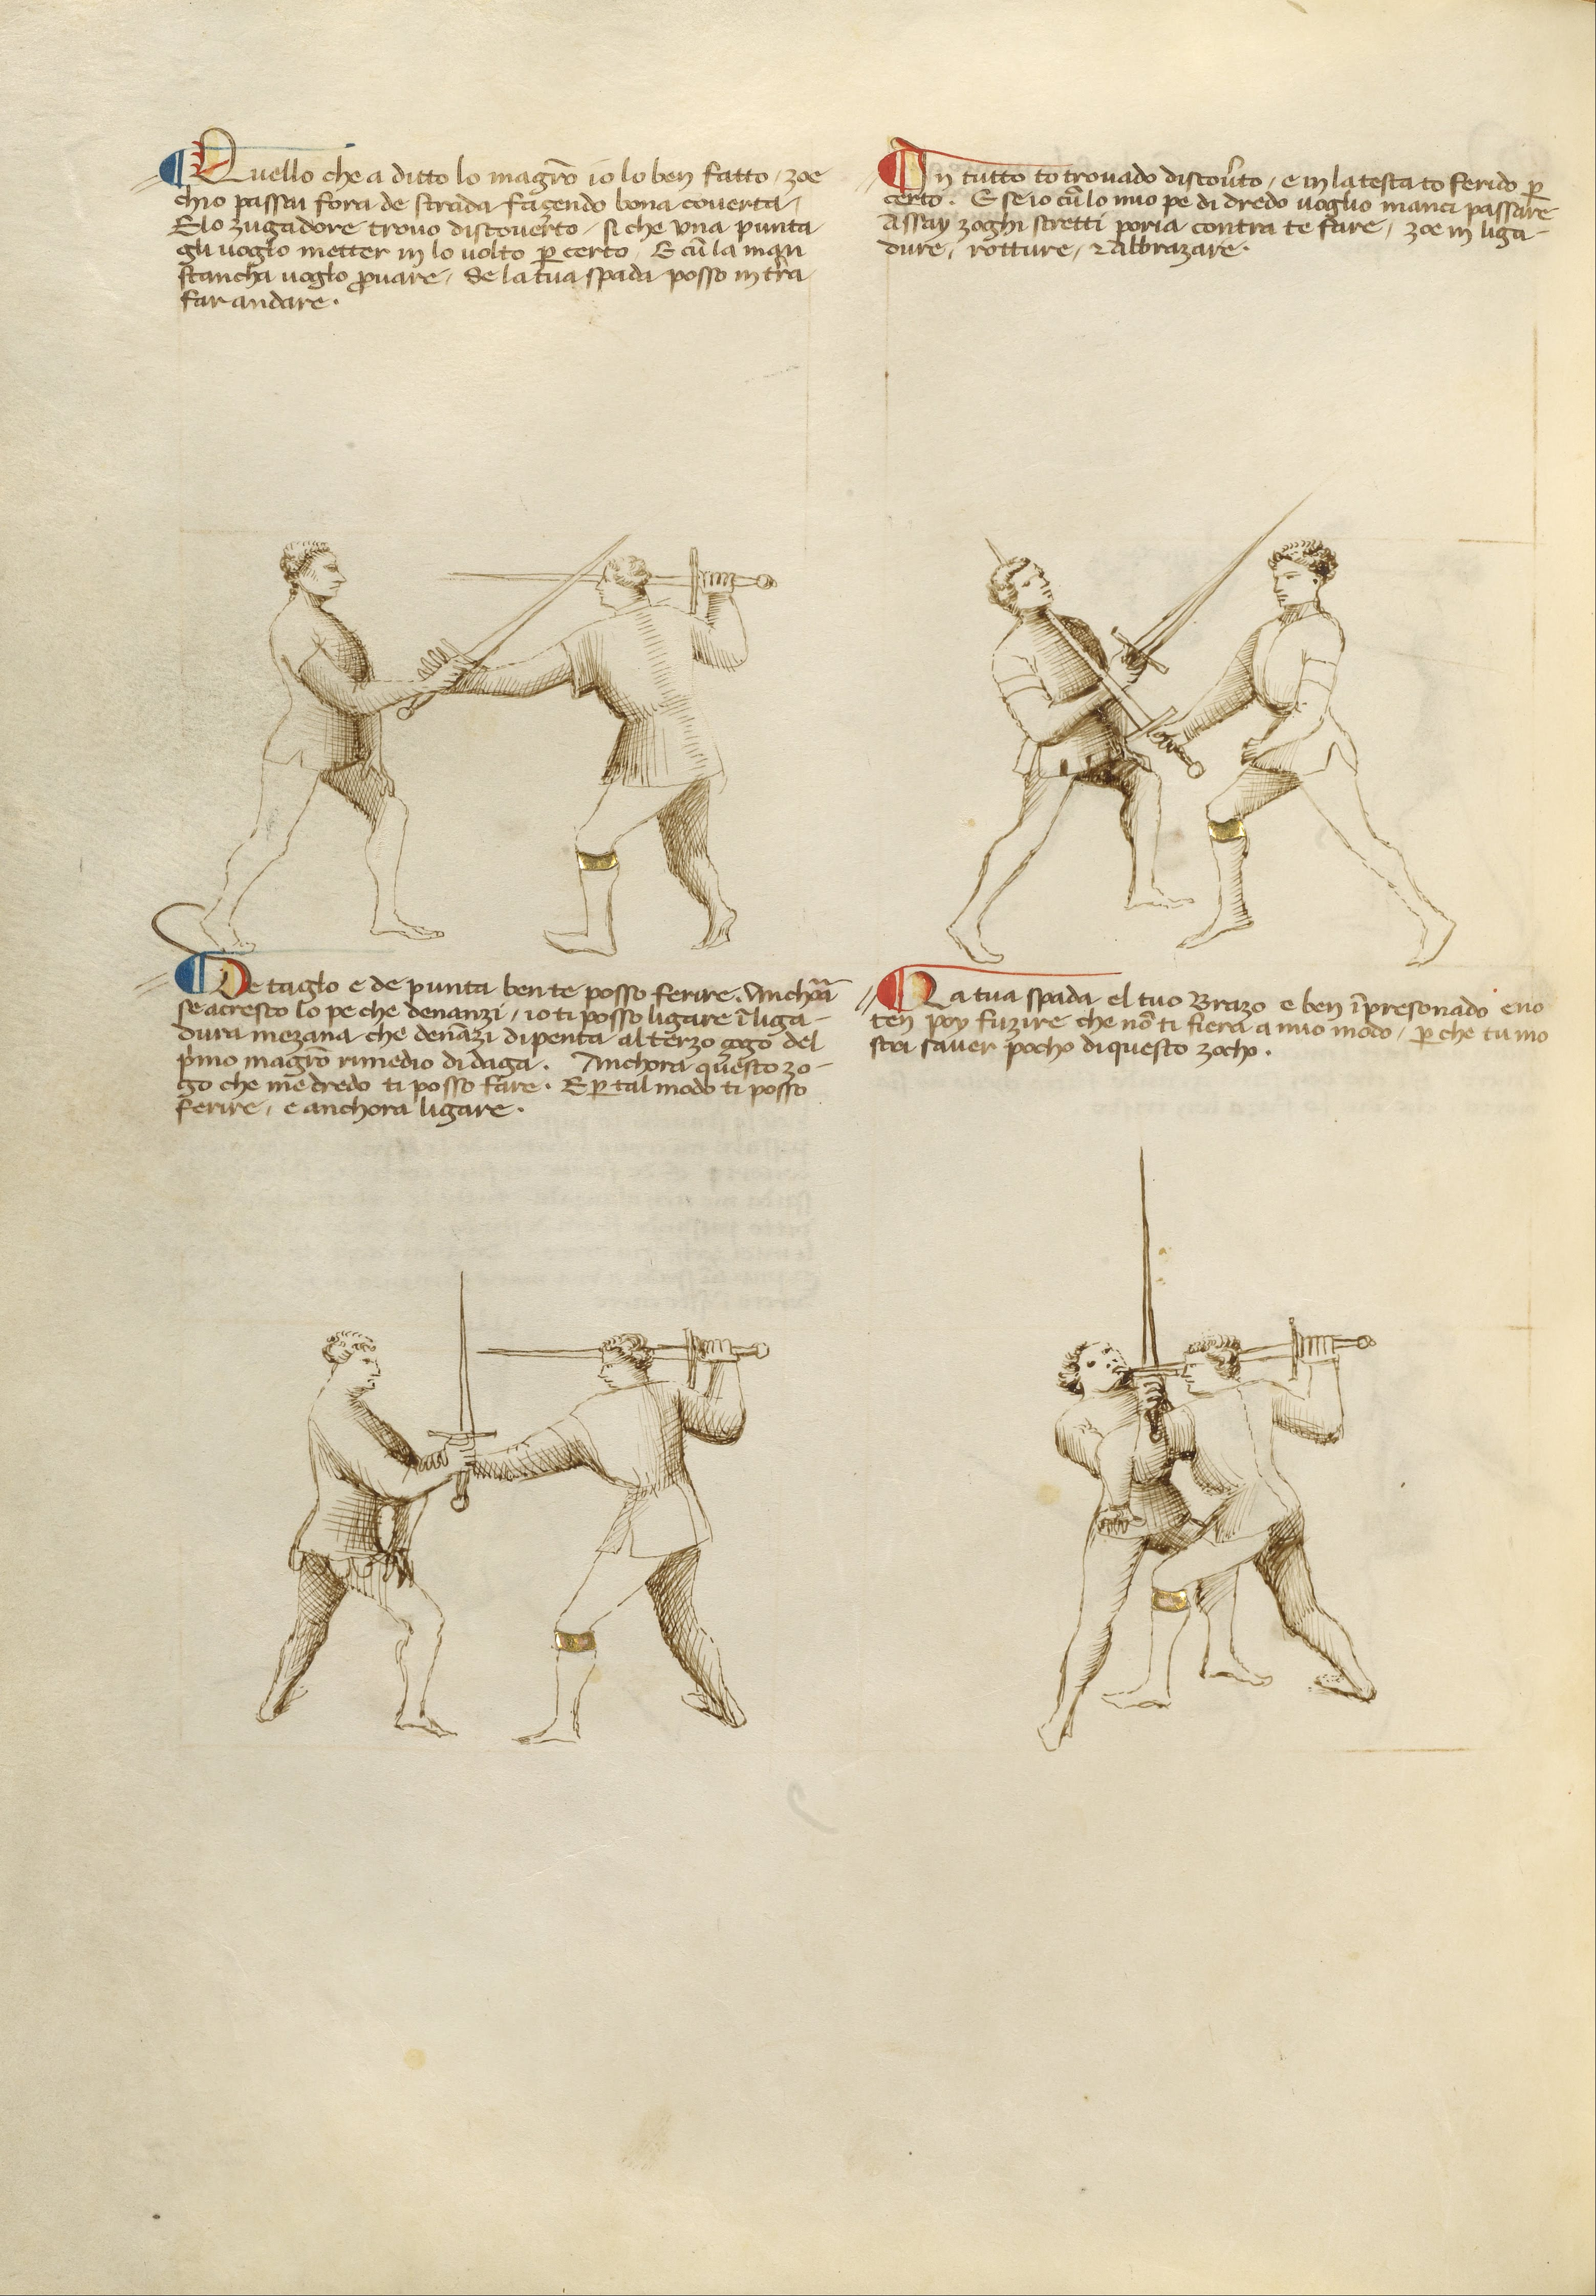 Quello che a ditto lo magr̄o io lo ben fatto / zoe
ch'io passai fora de strada fazendo bona coverta /
E lo zugadore trovo discoverto / si che una punta
gli voglo metter in lo volto p̱ certo / E cū la man
stancha voglo ꝓvare / Se la tua spada posso in tr̄a
far andare.
In tutto t'o trovado discov̄to / e in la testa t'o ferido p̱
certo. E se io cū lo mio pe di dredo voglio inanci passare
Assay zoghi stretti poria contra te fare / zoe in liga-
dure / rotture / ⁊ abbrazare.
De taglo e de punta ben te posso ferire. Anchora
se acresco lo pe che denanzi / io ti posso ligare ī liga-
dura mezana che denāzi dipenta al terzo zogo del
p̄mo magr̄o rimedio di daga. Anchora questo zo-
go che m'e dredo ti posso fare. E p̱ tal modo ti posso
ferire / e anchora ligare.
La tua spada e 'l tuo brazo e ben īpresonado e no
t'en poy fuzire che nō ti fiera a mio modo / p̱ che tu mo
stri saver pocho di questo zocho.